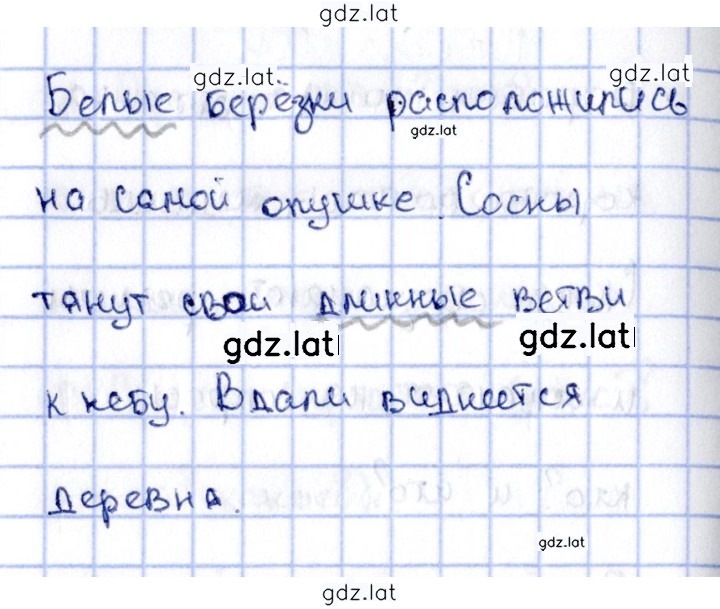 gdz.lat
gdz.lat
gdz.lat
Белые берёзки расположились
gdz.lat
на самой опушке. Сосны
тянут свои длинные ветви
gdz.lat
gdz.lat
к небу. Вдали виднеется
деревня.
gdz.lat
gdz.lat